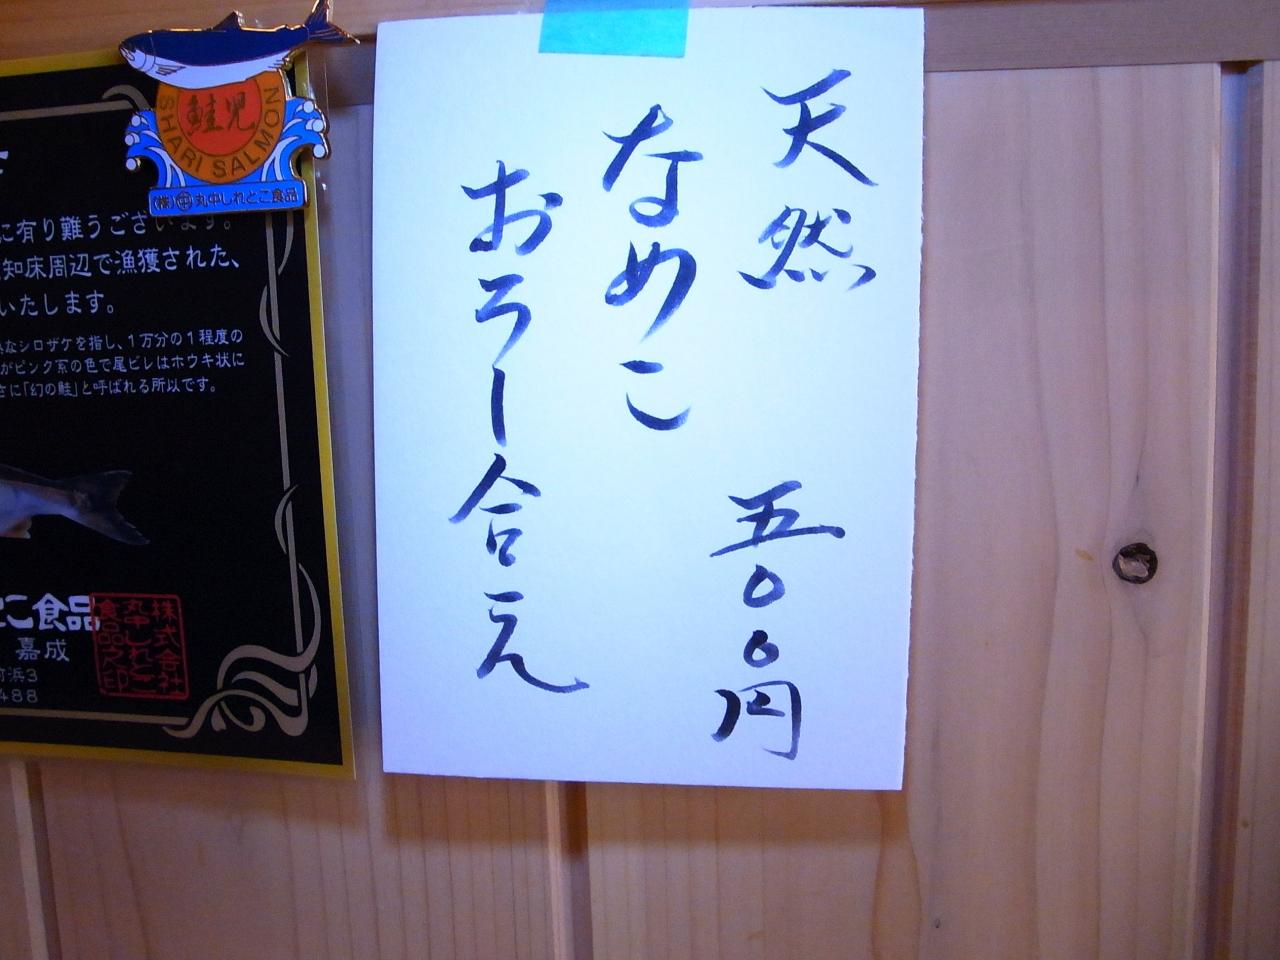 天然
五〇〇円
なめこ
おろし合え
鮭児
SHARI SALMON
(株)中丸中しれとこ食品
に有り難うございます。
知床周辺で漁獲された、
いたします。
なシロザケを指し、1万分の1程度の
がピンク系の色で尾ビレはホウキ状に
さに「幻の鮭」と呼ばれる所以です。
こ食品
嘉成
浜3
488
株式会社
丸中しれとこ
食品之印